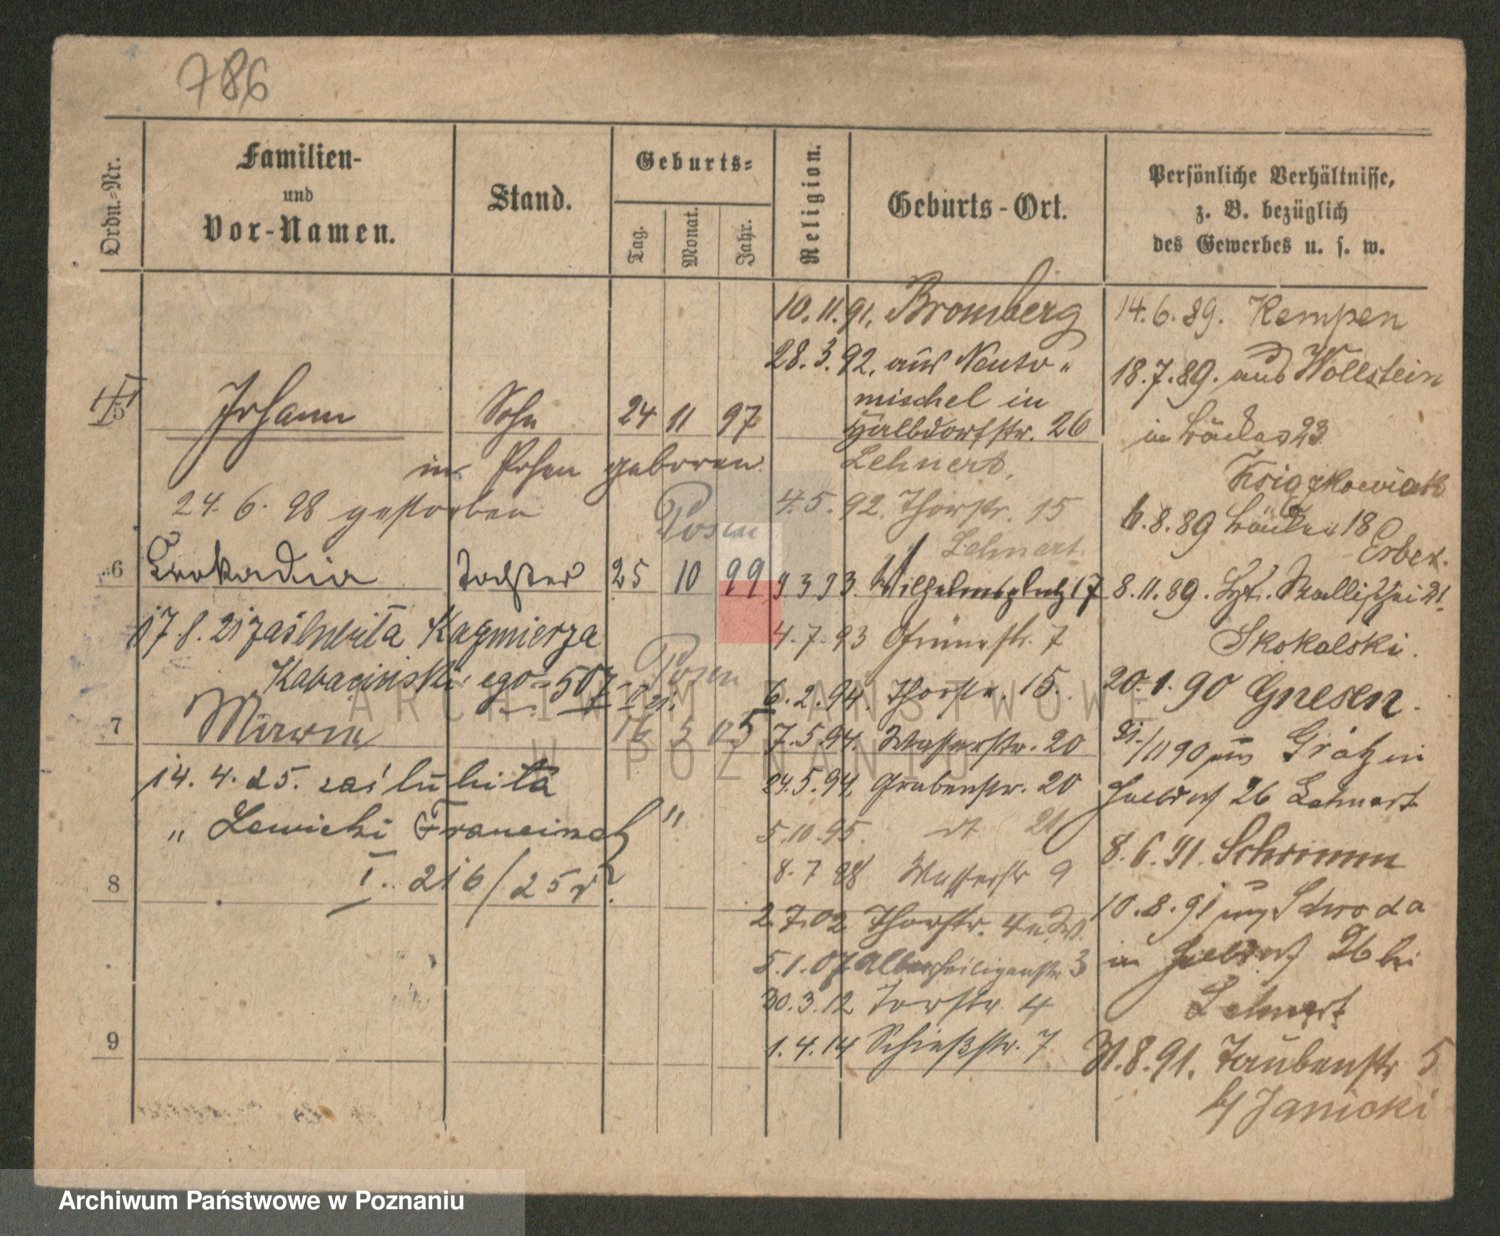 786
Ordn.-Nr.
Familien-
und
Vor-Namen.
Stand.
Geburts-
Tag.
Monat.
Jahr.
Religion.
Geburts-Ort.
Persönliche Verhältnisse,
z. B. bezüglich
des Gewerbes u. s. w.
5 Johann Sohn 24 11 97
in Posen geboren
24. 6. 98 gestorben
6 Leokadia Tochter 25 10 99 Posen
17.8.21 zaślubiła Kazmierza
Kabacińskiego - 507
7 Maria 16 5 05 Posen
14. 4. 25. zaślubiła
„ Lewicki Franciszek "
I. 216/25 r.
8
9
10.11.91. Bromberg
28.3.92. aus Neuto-
mischel in
Halbdorfstr. 26
Lehnert.
4.5.92. Thorstr. 15
Lehnert.
9 3 93. Wilhelmsplatz 17
4.7.93 Grünestr. 7
6.2.94 Thorstr. 15.
7.5.94. Wasserstr. 20
24.5.94. Grabenstr. 20
5.10.95. dt 21
8.7 98 Wasserstr 9
2.7.02 Thorstr. 4
5.1.07 Allerheiligenstr 3
30.3.12 Torstr. 4
1.4.14 Schießstr. 7
14.6.89. Kempen
18.7.89. aus Wollstein
in Bäcker 23
Ksiązkowiak
6.8.89 18
8.11.89. St. Wallischei 21.
Skokalski.
20.1.90 Gnesen.
/11 90 aus Grätz in
Halbdorf 26 Lehnert
8.6.91. Schrimm
10.8.91 Schroda
in Halbdorf 26 bei
Lehnert
11.8.91. Taubenstr 5
b/ Janicki
ARCHIWUM PAŃSTWOWE
W POZNANIU
Archiwum Państwowe w Poznaniu